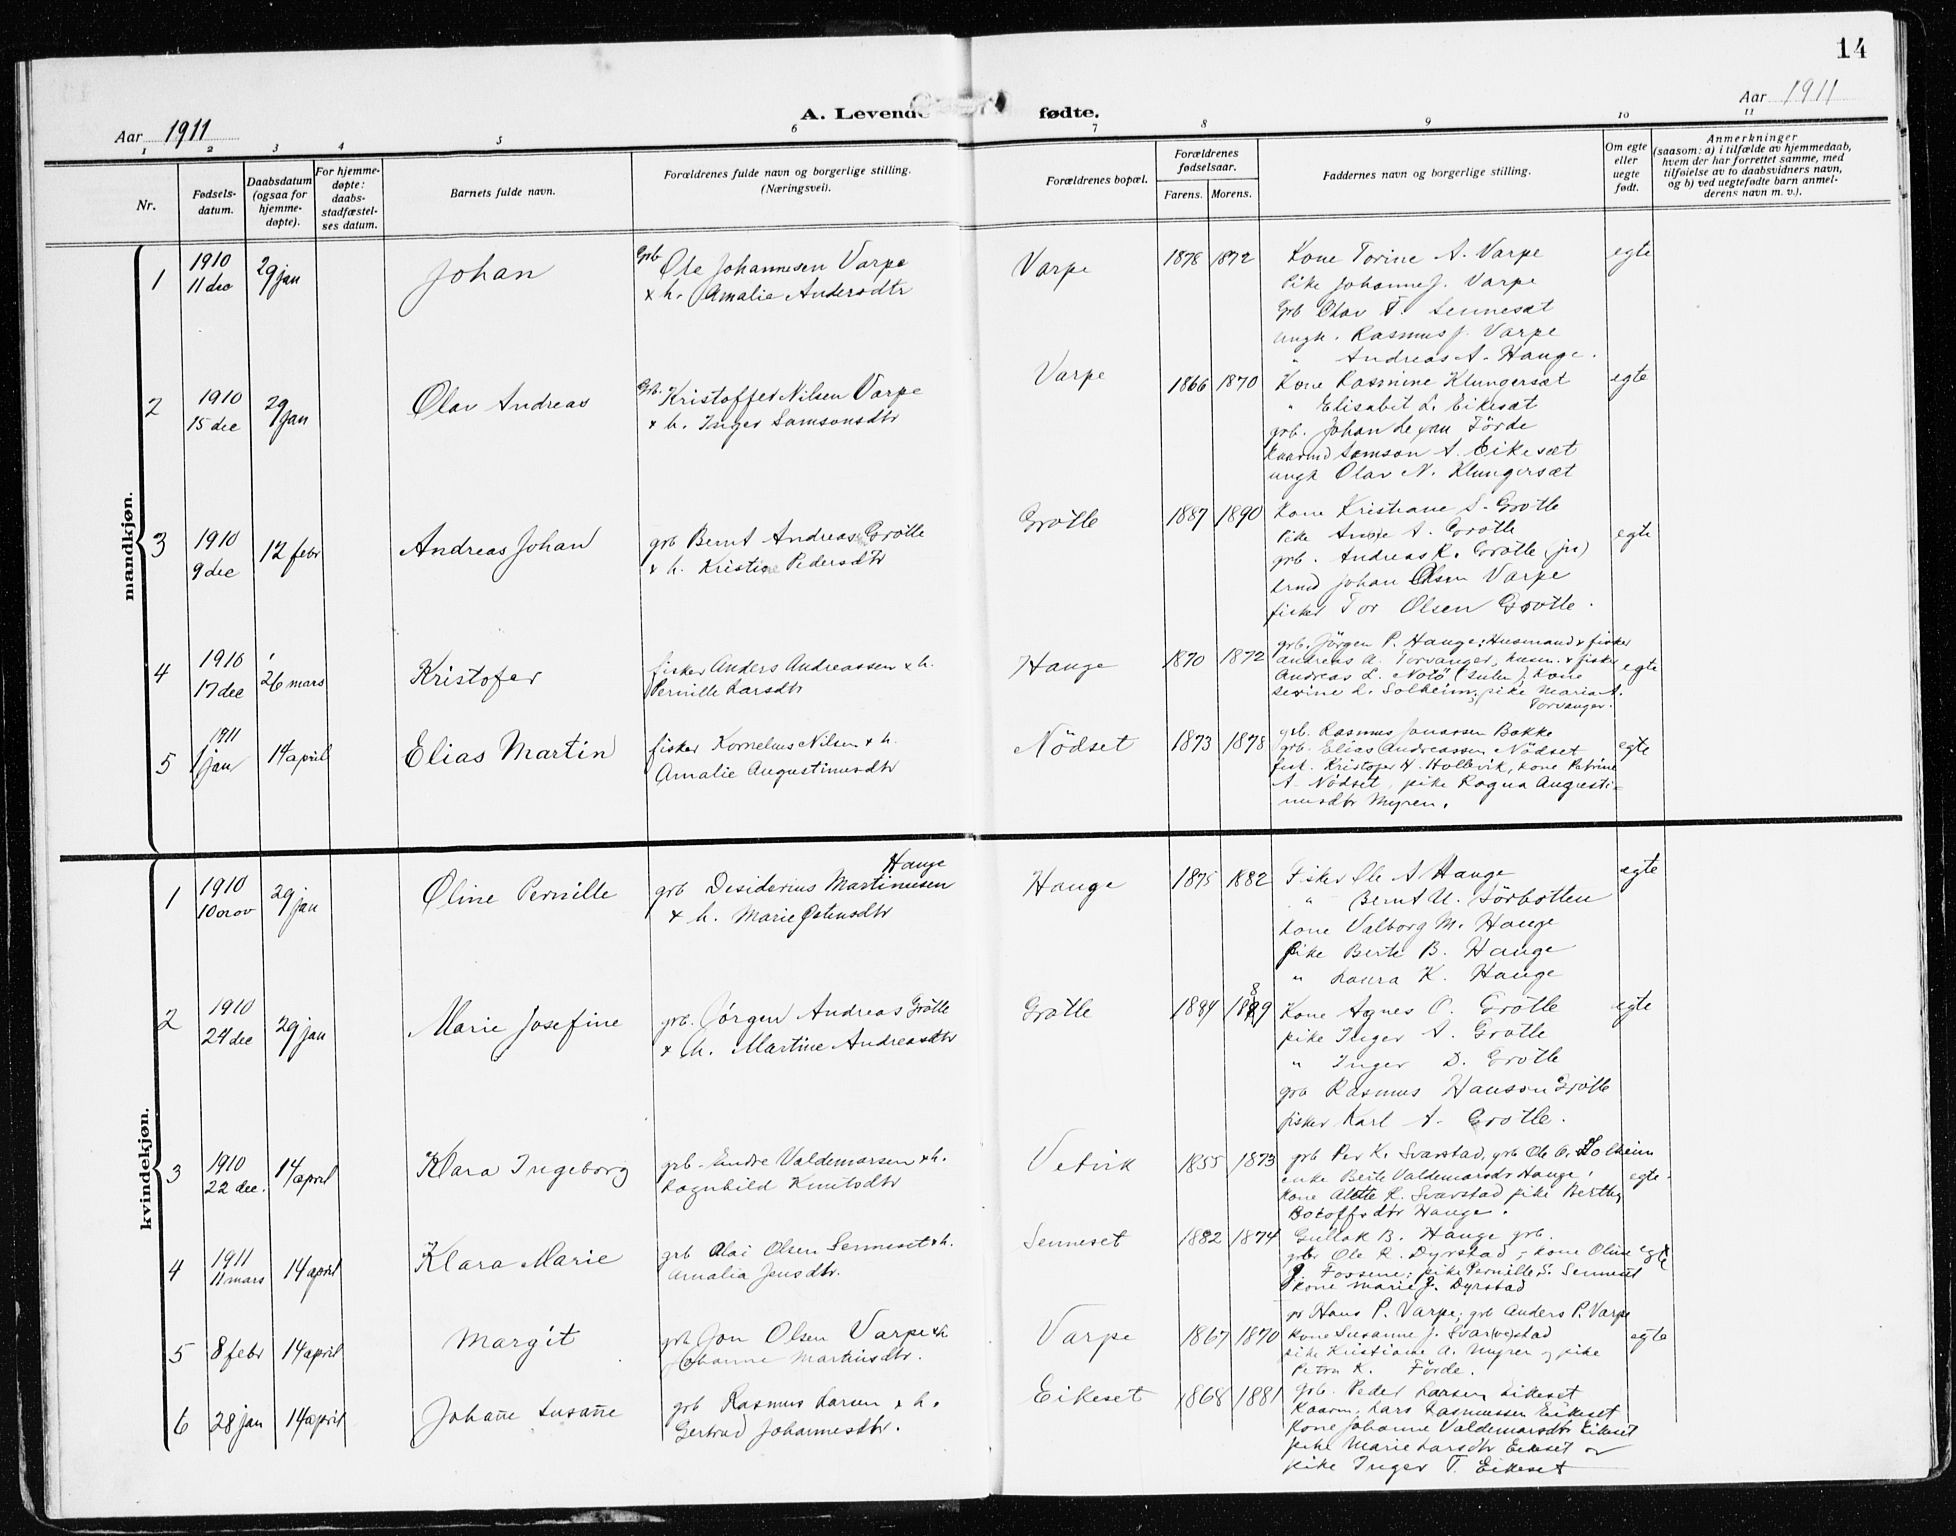 14
Aar 1911
A. Levende fødte.
Aar 1911
1 2 3 4 5 6 7 8 9 10 11
Nr.
Fødsels-
datum.
Daabsdatum
(ogsaa for
hjemme-
døpte).
For hjemme-
døpte:
daabs-
stadfæstel-
ses datum.
Barnets fulde navn.
Forældrenes fulde navn og borgerlige stilling.
(Næringsvei).
Forældrenes bopæl.
Forældrenes
fødselsaar.
Farens. Morens.
Faddernes navn og borgerlige stilling.
Om egte
eller
uegte
født.
Anmerkninger
(saasom: a) i tilfælde av hjemmedaab,
hvem der har forrettet samme, med
tilføielse av to daabsvidners navn,
og b) ved uegtefødte barn anmel-
derens navn m. v.).
mandkjøn.
1 1910 11 dec 29 jan Johan
Grb Ole Johannesen Varpe
& h. Amalie Andersdtr
Varpe 1878 1872
Kone Torine A. Varpe
Pike Johanne J. Varpe
Grb Olav T. Sennesæt
ungk. Rasmus J. Varpe
" Andreas A. Hauge.
egte
2 1910 15 dec 29 jan Olav Andreas
Grb. Kristoffer Nilsen Varpe
& h. Inger Samsonsdtr
Varpe 1866 1870
Kone Rasmine Klungersæt
" Elisabet L. Eikesæt
grb. Johan Förde
Kaarmd Samson A. Eikesæt
ungk Olav N. Klungersæt
egte
3 1910 9 dec 12 febr Andreas Johan
grb Bernt Andreas Grötle
& h. Kristine Pedersdtr
Grötle 1887 1890
Kone Kristiane S. Grötle
Pike Anne A. Grötle
grb. Andreas R. Grötle (jn)
Johan Olsen Varpe
fisker Tor Olsen Grötle.
egte
4 1910 17 dec 26 mars Kristofer
fisker Anders Andreassen & h.
Pernille Larsdtr
Hauge 1870 1872
grb. Jörgen P. Hauge; Husmand & fisker
Andreas A. Torvanger, husm. & fisker
Andreas L. Notö (Sulen), Kone
Sevrine L. Solheim, pike Maria A.
Torvanger.
egte
5 1911 1 jan 14 april Elias Martin
fisker Kornelius Nilsen & h.
Amalie Augustinusdtr
Nödset 1873 1878
grb. Rasmus Jonassen Bakke
grb. Elias Andreassen Nödset
fisk. Kristofer H. Hollevik, kone Petrine
A. Nödset, pike Ragna Augusti-
nusdtr Myren.
egte
kvindekjøn.
1 1910 10 nov 29 jan Oline Pernille
Hauge
grb Desiderius Martinusen
& h. Marie Östensdtr
Hauge 1875 1882
Fisker Ole A Hauge
" Bernt U. Sörbotten
Kone Valborg M. Hauge
Pike Berte B. Hauge
" Laura K. Hauge
egte
2 1910 24 dec 29 jan Marie Josefine
grb. Jørgen Andreas Grötle
& h. Martine Andreasdtr
Grötle 1884 1889
Kone Agnes O. Grötle
pike Inger A. Grötle
" Inger D. Grötle
grb Rasmus Hanson Grötle
fisker Karl A. Grötle.
egte
3 1910 22 dec. 14 april Klara Ingeborg
grb. Endre Valdemarsen & h.
Ragnhild Knutsdtr
Vetvik 1855 1873
grb Per K. Svarstad, grb Ole O. Solheim
enke Berte Valdemarsdtr Hauge,
Kone Alette R. Svarstad pike Berthe
Botolfsdtr Hauge.
egte.
4 1911 11 mars 14 april Klara Marie
grb Olai Olsen Senneset & h.
Amalia Jensdtr.
Senneset 1882 1874
Gullak B. Hauge grb.
grb Ole R. Dyrstad, kone Oline
J. Fossene; pike Pernille S. Senneset
kone Marie J. Dyrstad
egte
5 8 febr 14 april Margit
grb Jon Olsen Varpe & h.
Johanne Martinsdtr.
Varpe 1867 1870
gr Hans P. Varpe, grb Anders P. Varpe
kone Susanne J. Svar(ve)stad
pike Kristiane A. Myren og pike
Petra K. Förde.
egte
6 28 jan 14 april Johañe Susañe
grb Rasmus Larsen & h.
Gertrud Johannesdtr.
Eikeset 1868 1881
grb. Peder Larsen Eikeset
Kaarm. Lars Rasmussen Eikeset
Kone Johanne Valdemarsdtr Eikeset
pike Marie Larsdtr Eikeset og
pike Inger T. Eikeset